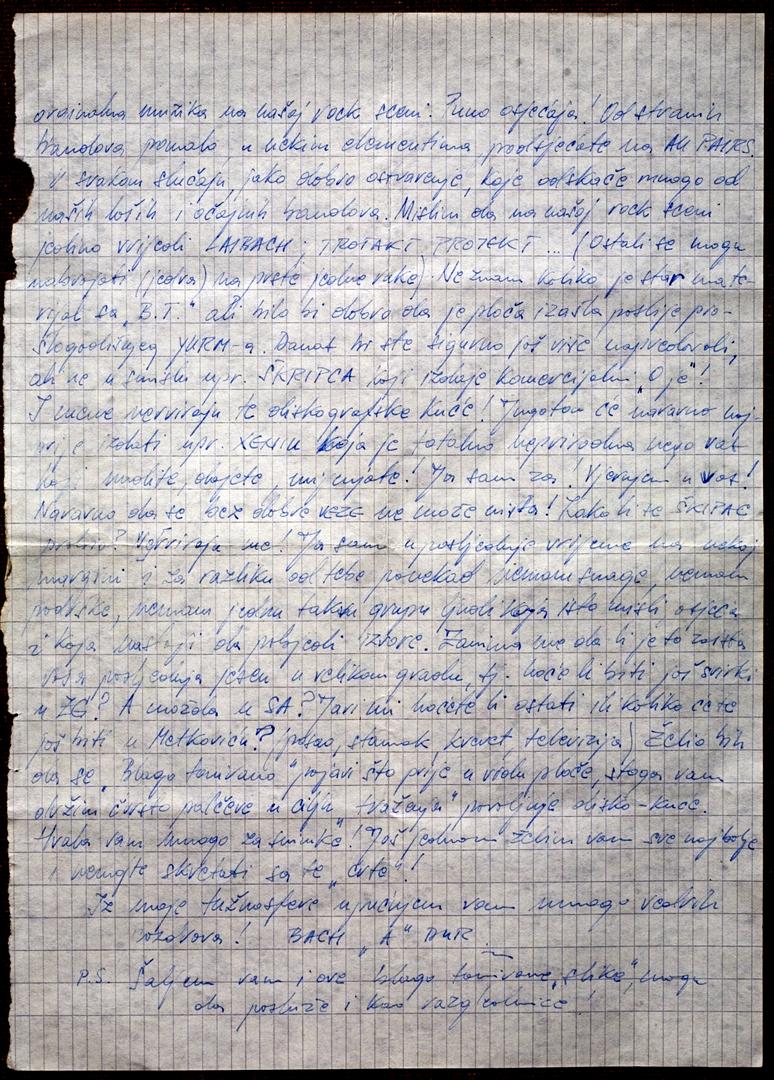 orginalna muzika na našoj rock sceni. Puno osjećaja! Od stranih
bandova pomalo, u nekim elementima podsjećate na AU PAIRS.
U svakom slučaju, jako dobro ostvarenje, koje odskače mnogo od
naših loših i očajnih bandova. Mislim da na našoj rock sceni
jedino vrijedi LAIBACH i TROTAKT PROJEKT ... (Ostali se mogu
nabrojati (jedva) na prste jedne ruke). Ne znam koliko je star mate-
rijal sa „B.T." ali bilo bi dobro da je ploča izašla poslije pro-
šlogodišnjeg YURM-a. Danas bi ste sigurno još više napredovali,
ali ne u smislu npr. ŠKRIPCA koji izdaje komercijalni „O je"!
I mene nerviraju te diskografske kuće! Jugoton će naravno naj-
prije izdati npr. XENIU koja je totalno neprirodna nego vas
koji nudite, dajete, mijenjate! Ja sam za! Vjerujem u vas!
Naravno da se bez dobre VEZE ne može ništa! Kako li se ŠKRIPAC
probio? Iznerviraju me! Ja sam u posljednje vrijeme na nekoj
margini i za razliku od tebe ponekad nemam snage, nemam
podrške, nemam jednu takvu grupu ljudi koja isto misli, osjeća
i koja nastoji da pobijedi izvore. Zanima me da li je to zaista
vaša posljednja jesen u velikom gradu, tj. hoće li biti još svirki
u ZG? A možda u SA? Javi mi hoćete li ostati ili koliko ćete
još biti u Metkoviću? (posao, stanak, krevet, televizija) Želio bih
da se „Blago tonirano" pojavi što prije u vidu ploče, stoga vam
držim čvrsto palčeve u cilju „traženja" povoljnije disko-kuće.
Hvala vam mnogo za snimke! Još jednom želim vam sve najbolje
i nemojte skretati sa te „crte"!
Iz moje tužnosfere upućujem vam mnogo vedrih
pozdrava! BACH „A" DUR
P.S. Šaljem vam i ove blago tonirane „slike", mogu
da posluže i kao razglednice!